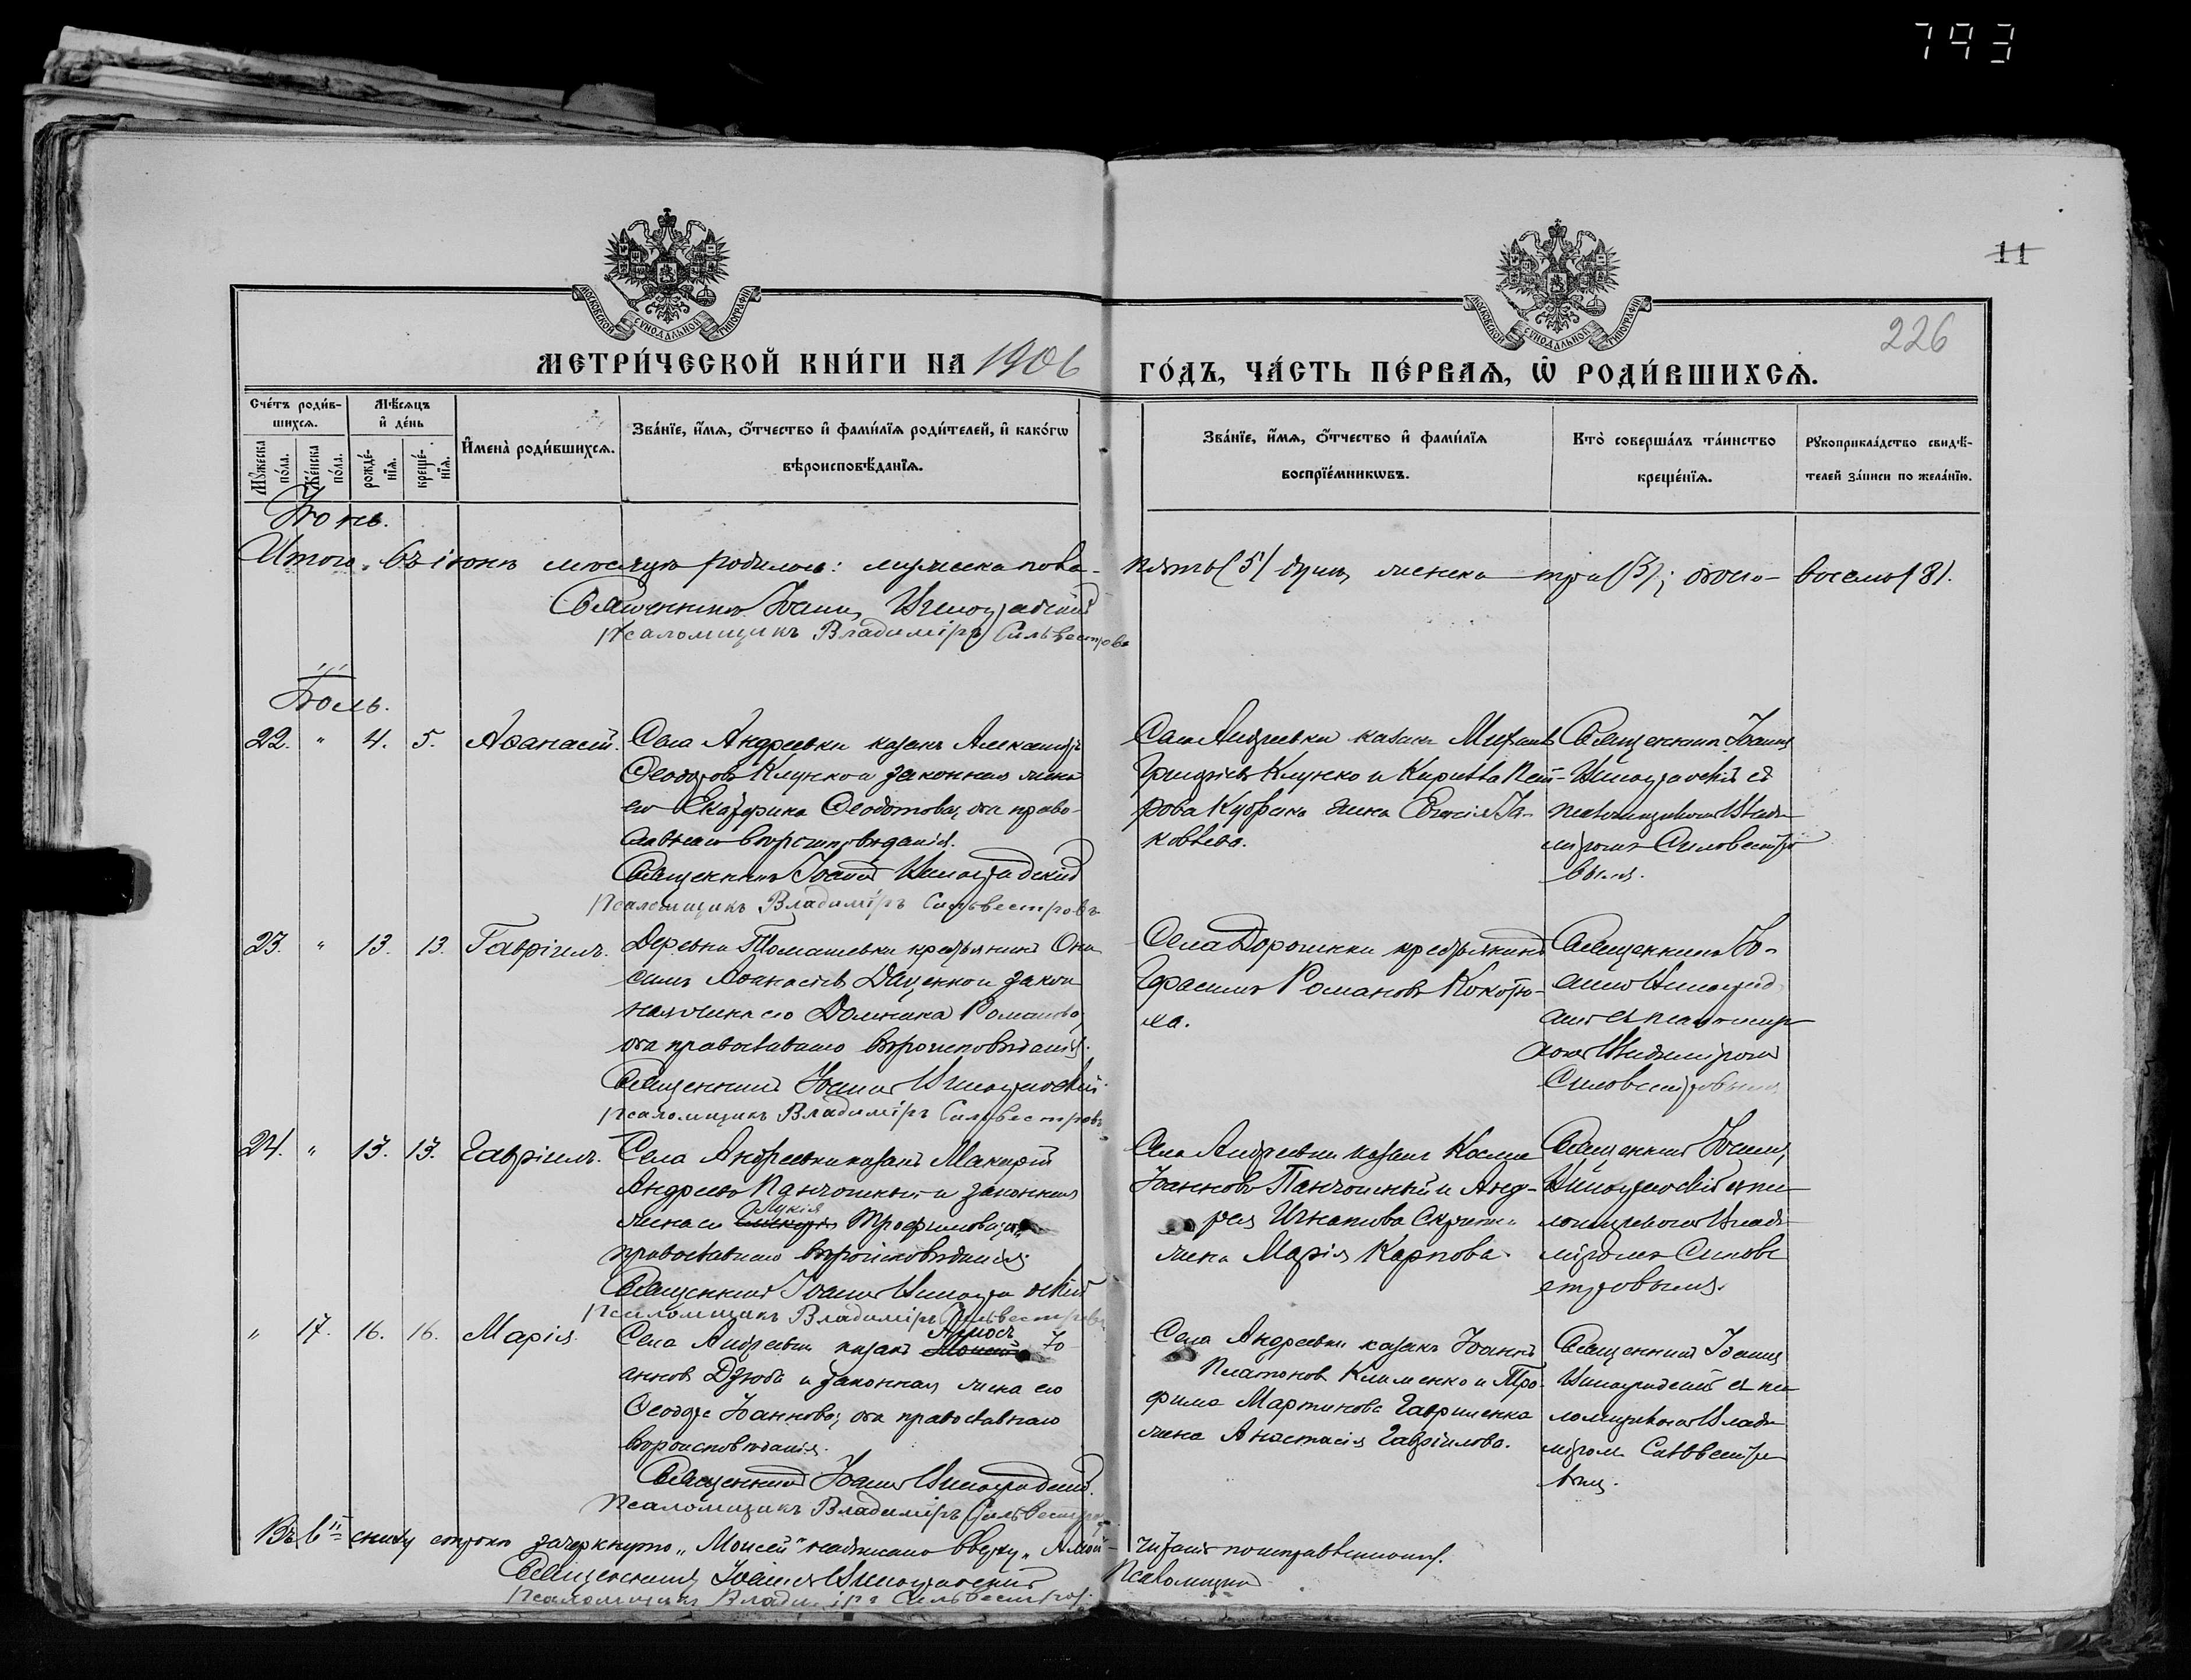 793
11
226
МОСКОВСКОЙ СѴНОДАЛЬНОЙ ТИПОГРАФІИ
МОСКОВСКОЙ СѴНОДАЛЬНОЙ ТИПОГРАФІИ
МЕТРИ́ЧЕСКОЙ КНИ́ГИ НА 1906
ГО́ДЪ, ЧА́СТЬ ПЕ́РВАѦ, Ѡ҆ РОДИ́ВШИХСѦ.
Сче́тъ роди́в-
шихсѧ.
Мѣ́сѧцъ
и҆ де́нь
Мꙋ́жеска
по́ла.
Же́нска
по́ла.
рожде́-
нїѧ.
креще́-
нїѧ.
И҆мена̀ роди́вшихсѧ.
Зва́нїе, и҆́мѧ, ѻ҆́тчество и҆ фами́лїѧ роди́телей, и҆ како́гѡ
вѣроисповѣ́данїѧ.
Зва́нїе, и҆́мѧ, ѻ҆́тчество и҆ фами́лїѧ
воспрїе́мникѡвъ.
Кто̀ соверша́лъ та́инство
креще́нїѧ.
Рꙋкоприкла́дство свидѣ́-
телей за́писи по жела́нїю.
Іюнь.
Итого въ іюнѣ мѣсяцѣ родилось: мужеска пола - пять (5) душ, женска три (3); обоего - восемь (8).
Священникъ Іоаннъ
Псаломщикъ Владиміръ Сильвестровъ
Іюль.
22. " 4. 5. Аѳанасій.
Села Андреевки казакъ Александръ
Ѳеодоровъ Клунко и законная жена
его Екатерина Ѳеодотова, оба право-
славнаго вѣроисповѣданія.
Священникъ Іоаннъ
Псаломщикъ Владиміръ Сильвестровъ
Села Андреевки казакъ Михаилъ
Григорьевъ Клунко и Кирилла Пет-
рова жена Евгенія Іа-
ковлева.
Священникъ Іоаннъ
съ
псаломщикомъ Влади-
міромъ Сильвестро
вымъ.
23. " 13. 13. Гавріилъ.
Деревни Томашевки крестьянинъ Они
симъ Аѳанасіевъ Даценко и закон
ная жена его Домника Романова,
оба православнаго вѣроисповѣданія.
Священникъ Іоаннъ
Псаломщикъ Владиміръ Сильвестровъ
Села Дорошики крестьянинъ
Герасимъ Романовъ Кокотю-
ха.
Священникъ Іо-
аннъ
Владиміромъ
Сильвестровымъ
24. " 13. 13. Гавріилъ.
Села Андреевки казакъ Макарій
Андреевъ Панчошный и законная
жена его Лукія Трофимова, оба
православнаго вѣроисповѣданія.
Священникъ Іоаннъ
Псаломщикъ Владиміръ Сильвестровъ
Села Андреевки казакъ Косма
Іоанновъ Панчошный и Анд-
рея Игнатова
жена Марія Карпова.
Священникъ Іоаннъ
съ пса
ломщикомъ Влади
міромъ Сильве
стровымъ.
" 17. 16. 16. Марія.
Села Андреевки казакъ Моисей Амосъ Іо
анновъ Дзюба и законная жена его
Ѳеодора Іоаннова, оба православнаго
вѣроисповѣданія.
Священникъ Іоаннъ
Псаломщикъ Владиміръ Сильвестровъ
Села Андреевки казакъ Іоаннъ
Платоновъ Клименко и Тро-
фима Мартинова Гавриленка
жена Анастасія Гавріилова.
Священникъ Іоаннъ
съ пса
ломщикомъ Влади
міромъ Сильвестро
вымъ.
Въ 6й снизу строкѣ зачеркнуто „Моисей" надписано вверху „Амосъ" читать по исправленному.
Священникъ Іоаннъ
Псаломщикъ
Псаломщикъ Владиміръ Сильвестровъ